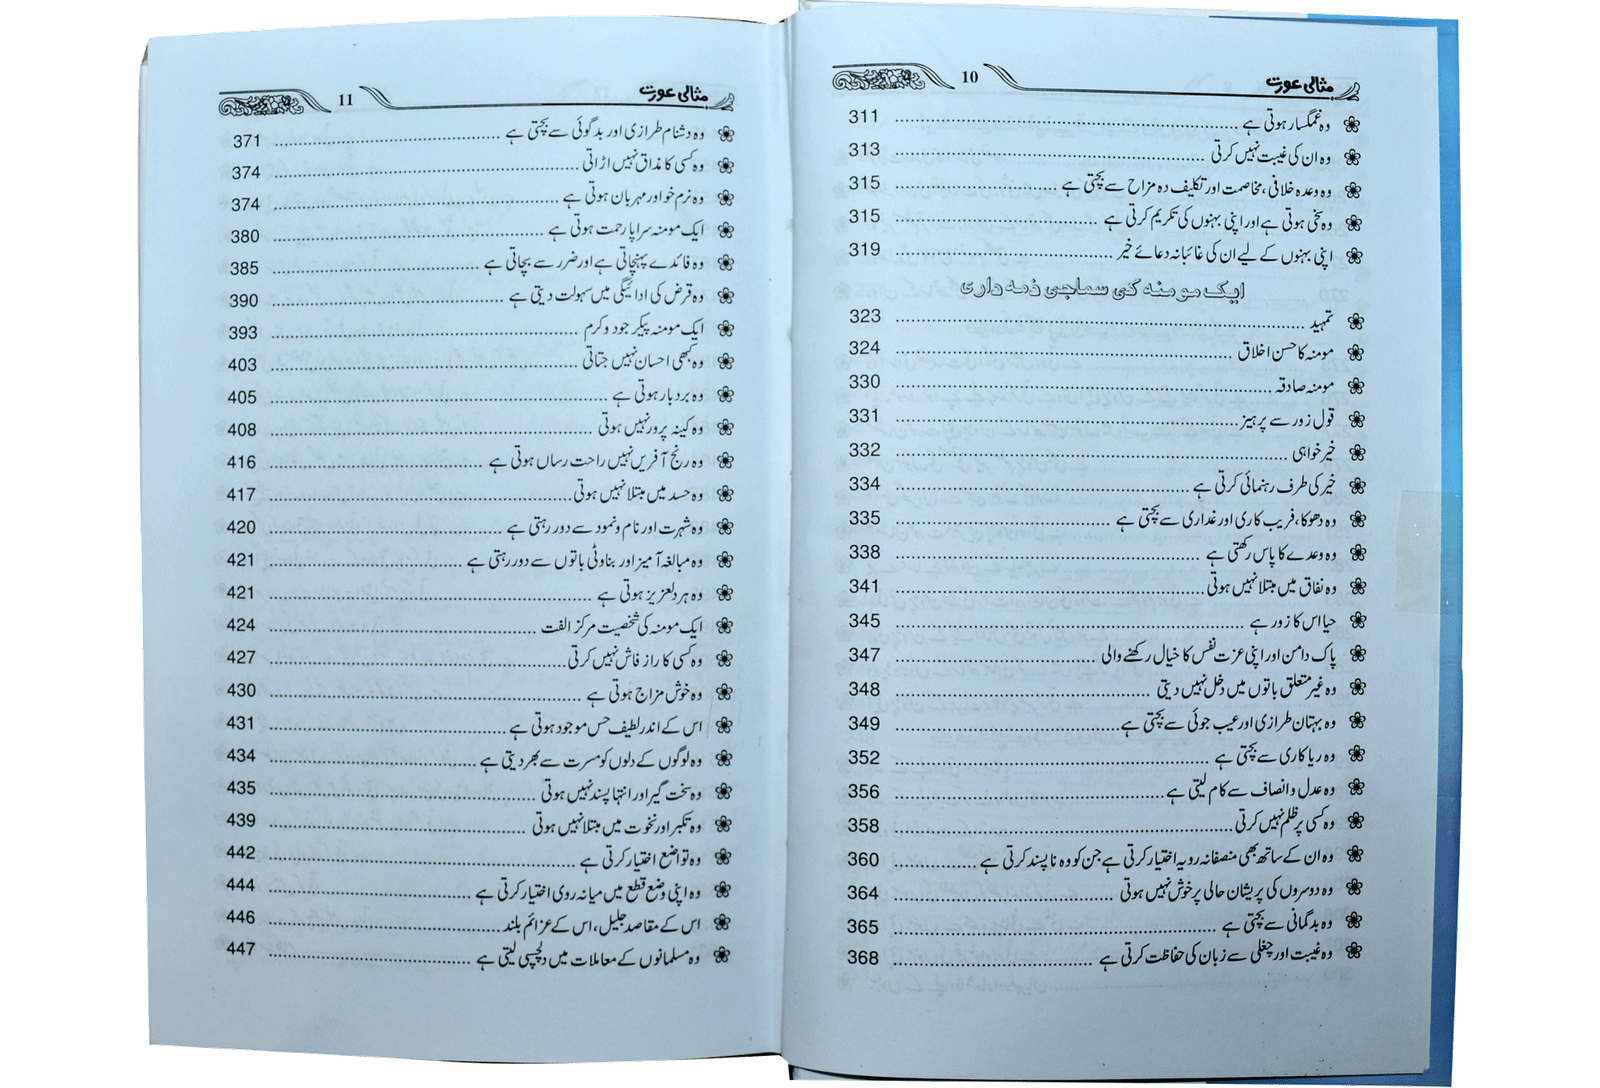 مثالی عورت 10
وہ غمگسار ہوتی ہے 311
وہ ان کی غیبت نہیں کرتی 313
وہ وعدہ خلافی، مخاصمت اور تکلیف دہ مزاح سے بچتی ہے 315
وہ سخی ہوتی ہے اور اپنی بہنوں کی تکریم کرتی ہے 315
اپنی بہنوں کے لیے ان کی غائبانہ دعائے خیر 319
ایک مومنہ کی سماجی ذمہ داری
تمہید 323
مومنہ کا حسن اخلاق 324
مومنہ صادقہ 330
قول زور سے پرہیز 331
خیر خواہی 332
خیر کی طرف رہنمائی کرتی ہے 334
وہ دھوکا، فریب کاری اور غداری سے بچتی ہے 335
وہ وعدے کا پاس رکھتی ہے 338
وہ نفاق میں مبتلا نہیں ہوتی 341
حیا اس کا زور ہے 345
پاک دامن اور اپنی عزت نفس کا خیال رکھنے والی 347
وہ غیر متعلق باتوں میں دخل نہیں دیتی 348
وہ بہتان طرازی اور عیب جوئی سے بچتی ہے 349
وہ ریا کاری سے بچتی ہے 352
وہ عدل و انصاف سے کام لیتی ہے 356
وہ کسی پر ظلم نہیں کرتی 358
وہ ان کے ساتھ بھی منصفانہ رویہ اختیار کرتی ہے جن کو وہ ناپسند کرتی ہے 360
وہ دوسروں کی پریشان حالی پر خوش نہیں ہوتی 364
وہ بدگمانی سے بچتی ہے 365
وہ غیبت اور چغلی سے زبان کی حفاظت کرتی ہے 368
مثالی عورت 11
وہ دشنام طرازی اور بدگوئی سے بچتی ہے 371
وہ کسی کا مذاق نہیں اڑاتی 374
وہ نرم خو اور مہربان ہوتی ہے 374
ایک مومنہ سراپا رحمت ہوتی ہے 380
وہ فائدے پہنچاتی ہے اور ضرر سے بچاتی ہے 385
وہ قرض کی ادائیگی میں سہولت دیتی ہے 390
ایک مومنہ پیکر جود و کرم 393
وہ کبھی احسان نہیں جتاتی 403
وہ بردبار ہوتی ہے 405
وہ کینہ پرور نہیں ہوتی 408
وہ رنج آفریں نہیں راحت رساں ہوتی ہے 416
وہ حسد میں مبتلا نہیں ہوتی 417
وہ شہرت اور نام و نمود سے دور رہتی ہے 420
وہ مبالغہ آمیز اور بناوٹی باتوں سے دور رہتی ہے 421
وہ ہر دلعزیز ہوتی ہے 421
ایک مومنہ کی شخصیت مرکز الفت 424
وہ کسی کا راز فاش نہیں کرتی 427
وہ خوش مزاج ہوتی ہے 430
اس کے اندر لطیف حس موجود ہوتی ہے 431
وہ لوگوں کے دلوں کو مسرت سے بھر دیتی ہے 434
وہ سخت گیر اور انتہا پسند نہیں ہوتی 435
وہ تکبر اور نخوت میں مبتلا نہیں ہوتی 439
وہ تواضع اختیار کرتی ہے 442
وہ اپنی وضع قطع میں میانہ روی اختیار کرتی ہے 444
اس کے مقاصد جلیل، اس کے عزائم بلند 446
وہ مسلمانوں کے معاملات میں دلچسپی لیتی ہے 447